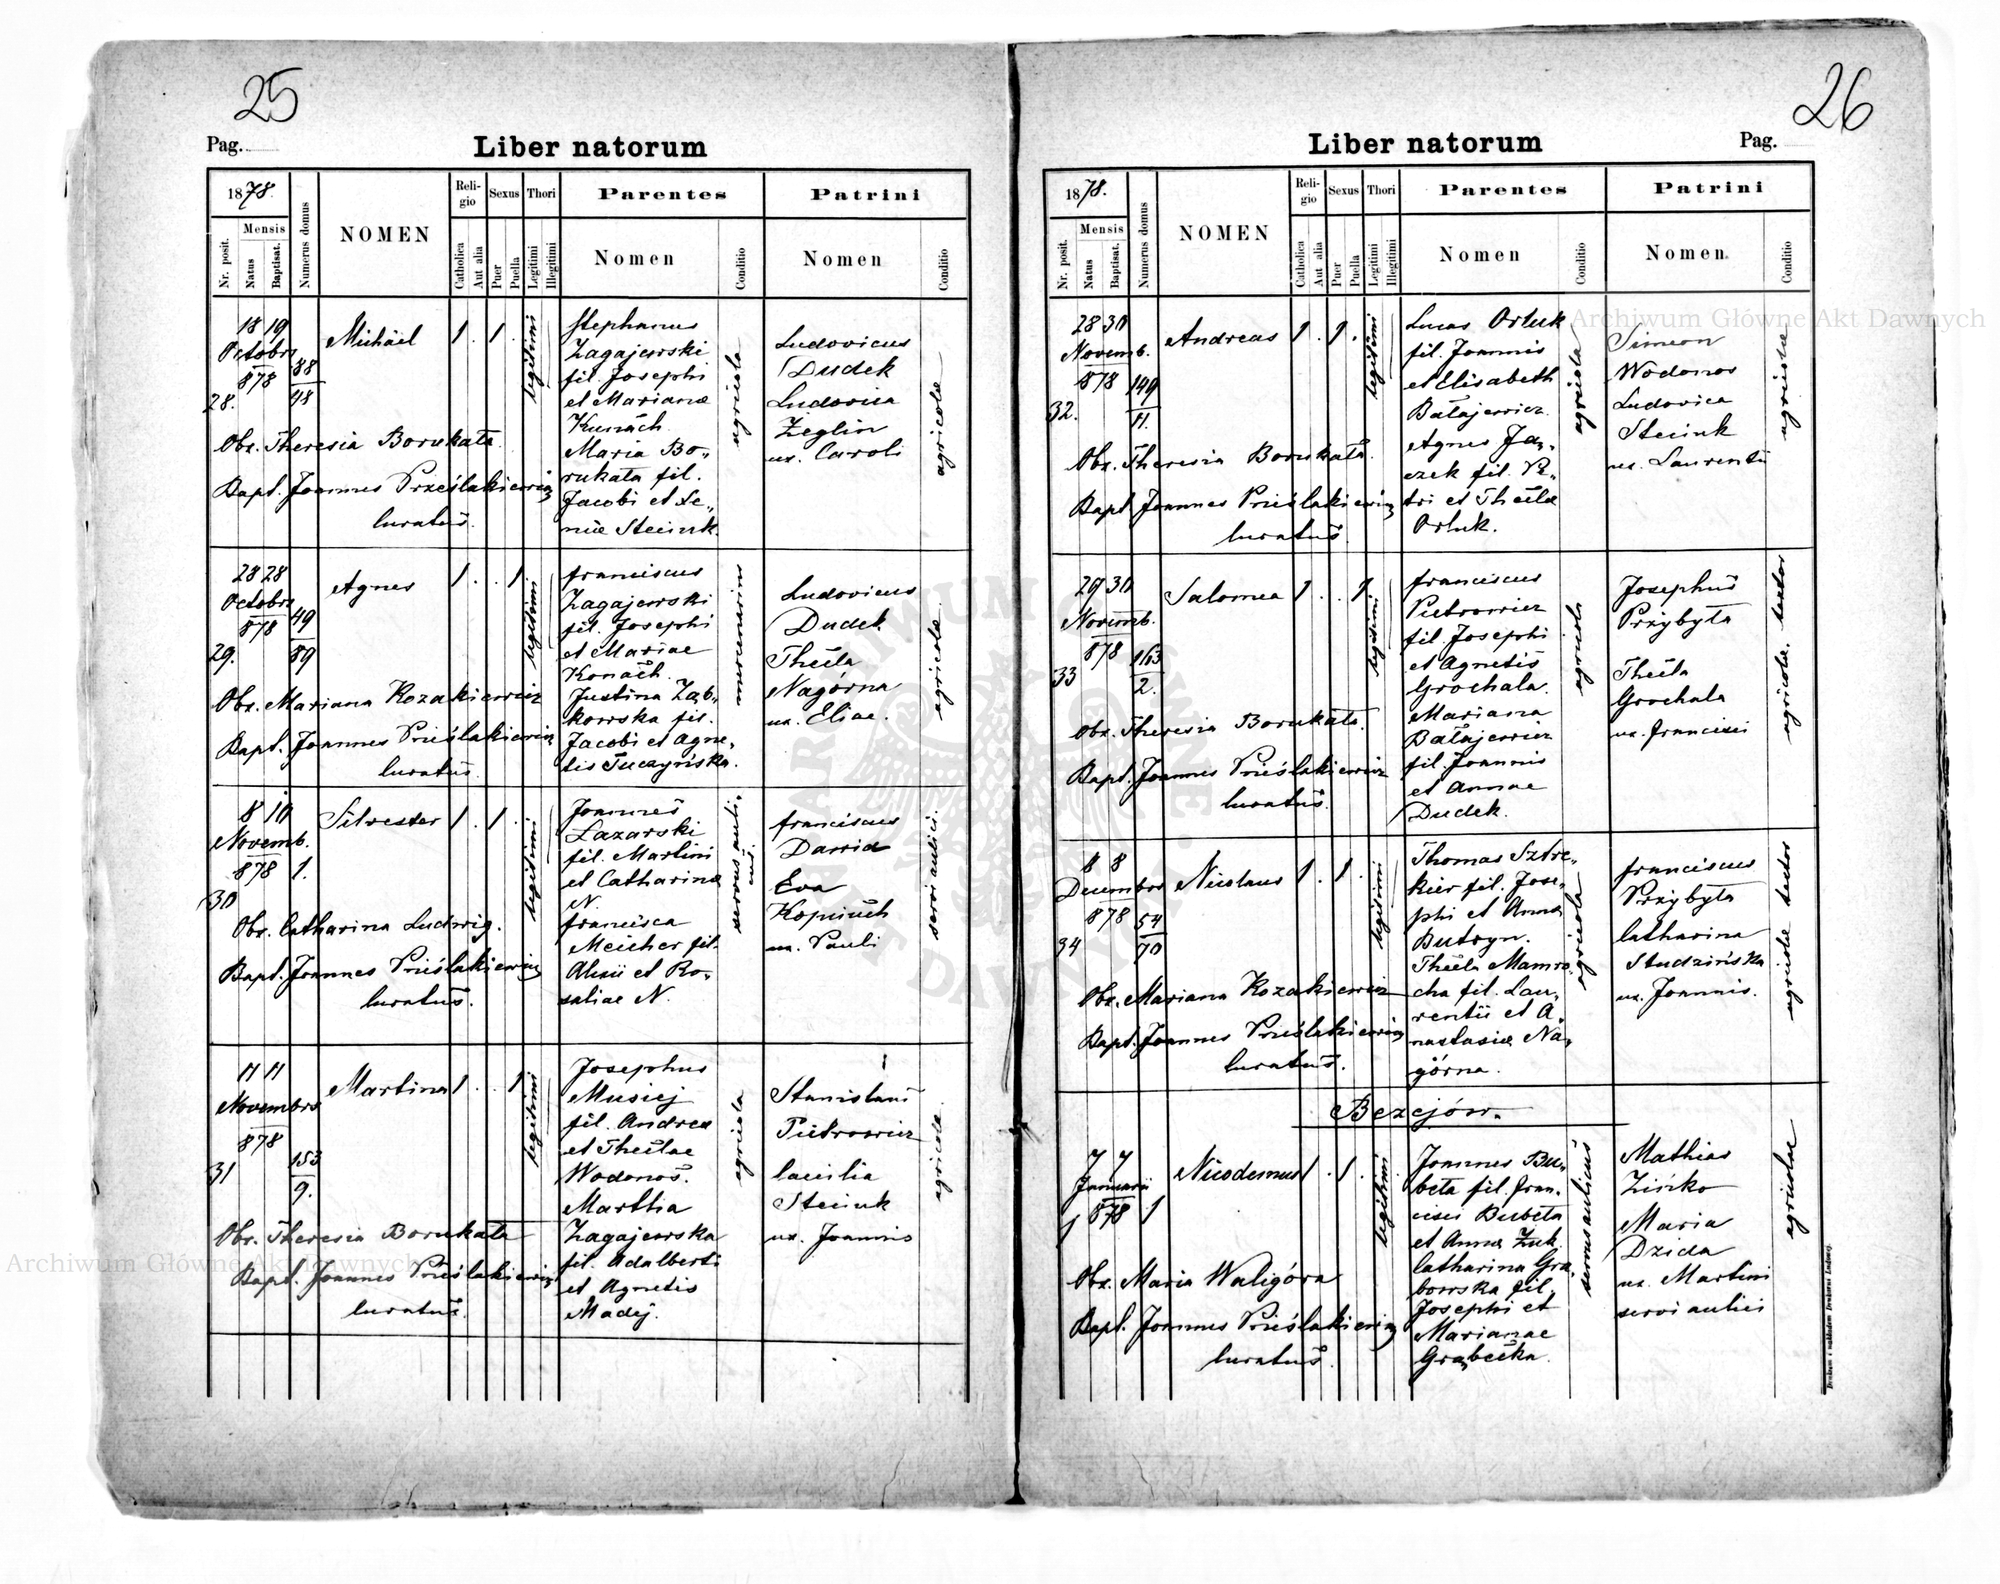 25
Pag.
Liber natorum
1878.
Mensis
Nr. posit.
Natus
Baptisat.
Numerus domus
NOMEN
Reli-
gio
Sexus
Thori
Catholica
Aut alia
Puer
Puella
Legitimi
Illegitimi
Parentes
Nomen
Conditio
Patrini
Nomen
Conditio
18 19
Octobris
878
88
48
28.
Michäel
1 . 1 .
legitimi
Stephanus
Zagajewski
fil. Josephi
et Marianæ
Kunách
Maria Bo„
rukata fil.
Jacobi et Xe„
niæ Steciuk.
agricola
Ludovicus
Dudek
Ludovica
Żeglin
ux. Caroli
agricolæ
Obx. Theresia Borukata
Bapt. Joannes Prześlakiewicz
Curatus.
28 28
Octobris
878
49
89
29.
Agnes
1 . . 1
legitimi
Franciscus
Zagajewski
fil. Josephi
et Mariae
Konách
Justina Ząb„
kowska fil.
Jacobi et Agne„
tis Tuczyńska.
mercenarius
Ludovicus
Dudek
Thecla
Nagórna
ux. Eliae.
agricolæ
Obx. Mariana Kozakiewicz
Bapt. Joannes Prześlakiewicz
Curatus.
8 10
Novemb.
878
1.
30
Silvester
1 . 1 .
legitimi
Joannes
Łazarski
fil. Martini
et Catharinæ
N.
Francisca
Melcher fil.
Alexii et Ro„
saliae N.
servus auli„
cus.
Franciscus
Dawid
Eva
Kopiuch
ux. Pauli
servi aulici.
Obx. Catharina Ludwig.
Bapt. Joannes Prześlakiewicz
Curatus.
11 11
Novembris
878
153
9.
31
Martina
1 . . 1
legitimi
Josephus
Musiej
fil. Andreæ
et Theclae
Wodonos.
Martha
Zagajewska
fil. Adalberti
et Agnetis
Madej.
agricola
Stanislaus
Pietrowicz
Caecilia
Steciuk
ux. Joannis
agricolæ
Obx. Theresia Borukata
Bapt. Joannes Prześlakiewicz
Curatus.
26
Liber natorum
Pag.
1878.
Mensis
Nr. posit.
Natus
Baptisat.
Numerus domus
NOMEN
Reli-
gio
Sexus
Thori
Catholica
Aut alia
Puer
Puella
Legitimi
Illegitimi
Parentes
Nomen
Conditio
Patrini
Nomen
Conditio
28 30
Novemb.
878
149
11.
32.
Andreas
1 . 1 .
legitimi
Lucas Orluk
fil. Joannis
et Elisabeth
Bałajewicz
Agnes Ja„
czek fil. Pe„
tri et Theclæ
Orluk.
agricola
Simeon
Wodonos
Ludovica
Steciuk
ux. Laurentii
agricolæ
Obx. Theresia Borukata.
Bapt. Joannes Prześlakiewicz
Curatus.
29 30
Novemb.
878
163
2.
33
Salomea
1 . . 1
legitimi
Franciscus
Pietrowicz
fil. Josephi
et Agnetis
Grochala.
Mariana
Bałajewicz
fil. Joannis
et Annae
Dudek.
agricola
Josephus
Przybyta
Thecla
Grochala
ux. Francisci
agricolæ. textor
Obx. Theresia Borukata.
Bapt. Joannes Prześlakiewicz
Curatus.
8 8
Decembris
878
54
70
34
Nicolaus
1 . 1 .
legitimi
Thomas Sztre„
kier fil. Jose„
phi et Annæ
Butryn.
Thecla Mamro„
cha fil. Lau„
rentii et A„
nastasiæ Na„
górna.
agricola
Franciscus
Przybyta
Catharina
Studzińska
ux. Joannis.
agricolæ textor
Obx. Mariana Kozakiewicz
Bapt. Joannes Prześlakiewicz
Curatus.
Bezejów.
7 7
Januarii
878
1
1
Nicodemus
1 . 1 .
legitimi
Joannes Bu„
beta fil. Fran„
cisci Bubeta
et Annæ Żuk
Catharina Gra„
bowska fil.
Josephi et
Marianae
Grąbecka.
servus aulicus
Mathias
Zińko
Maria
Dzida
ux. Martini
servi aulici
agricolæ
Obx. Maria Waligóra
Bapt. Joannes Prześlakiewicz
Curatus.
Drukiem i nakładem Drukarni Ludowej.
Archiwum Główne Akt Dawnych
Archiwum Główne Akt Dawnych
ARCHIWUM GŁÓWNE AKT DAWNYCH